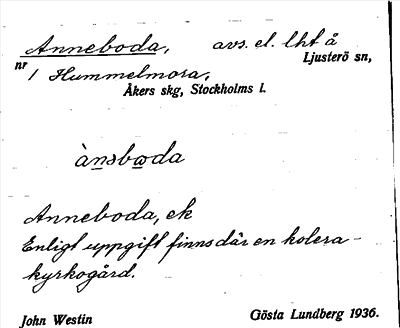 Anneboda, avs. el. lht å
Ljusterö sn,
nr 1 Hummelmora,
Åkers skg, Stockholms l.
ànsboda
Anneboda, ek
Enligt uppgift finns där en kolera-
kyrkogård.
John Westin Gösta Lundberg 1936.